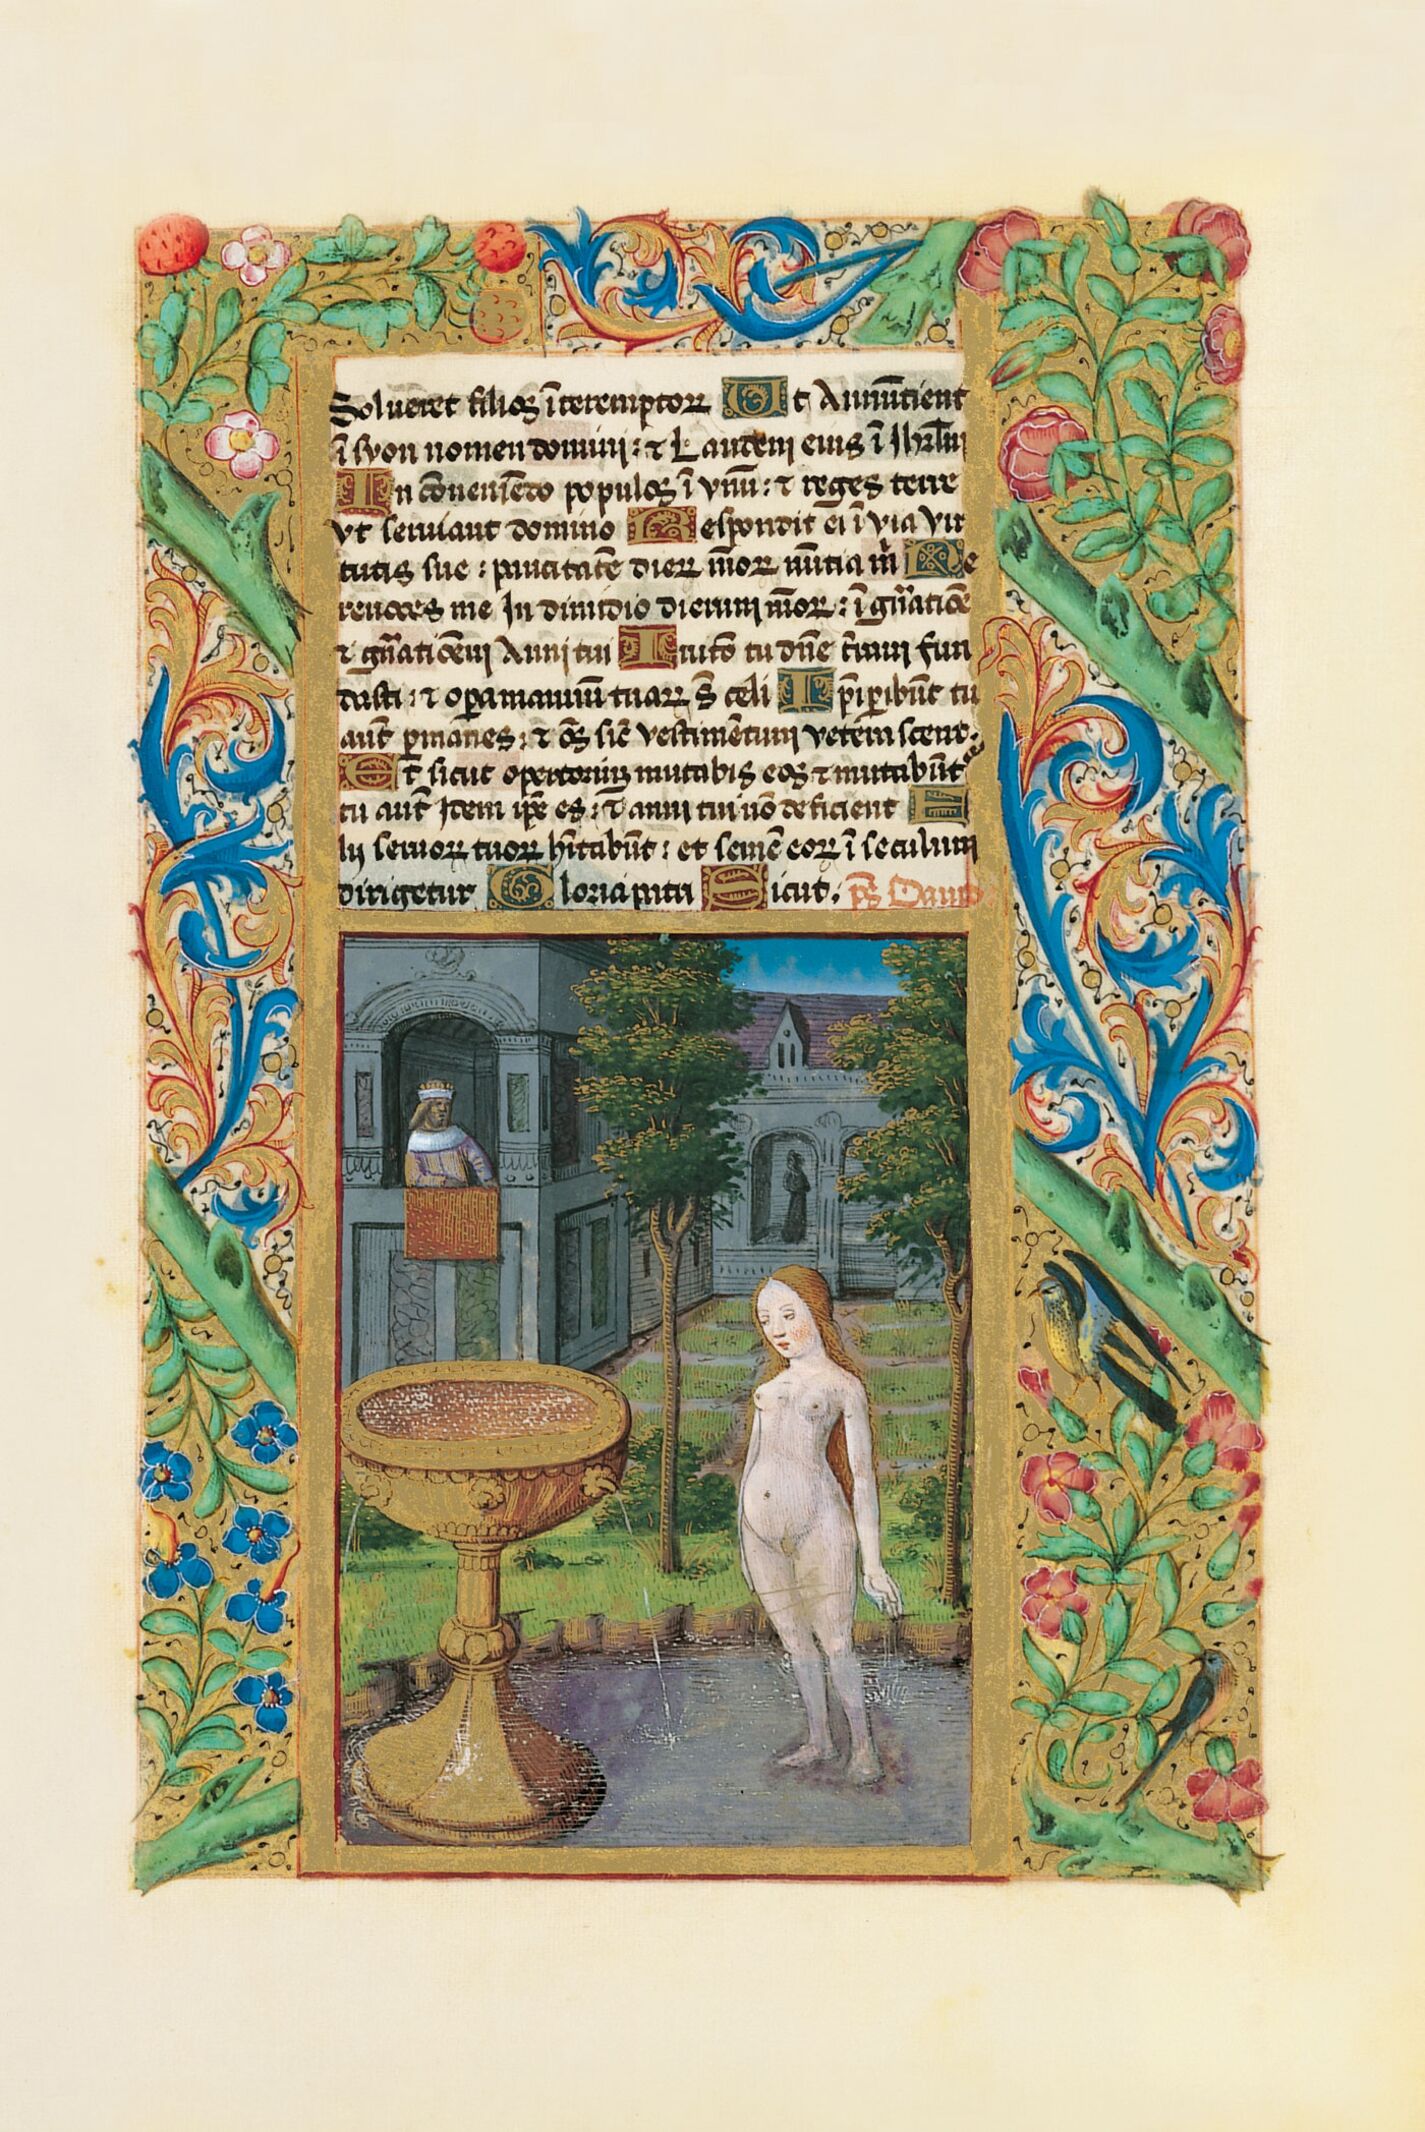 Solueret filios īteremptoꝝ Ut Annūtient
ī syon nomen domini : ⁊ Laudem eius ī Jhrl̄m
In cōueniēdo populos ī vnū : ⁊ reges terre
vt seruiant domino Respondit ei ī via vir
tutis sue : paucitatē dieꝝ meoꝝ nūtia m̄ Ne
reuoces me In dimidio dierum meoꝝ : ī gn̄atiōe
⁊ gn̄atiōem Anni tui Initō tu dn̄e t̄ram fun
dasti : ⁊ oꝑa manuū tuaꝝ s̄ celi Ip̄i ꝑibūt tu
aūt ꝑmanes : ⁊ oēs sic̄ vestimētum veterascent.
Et sicut opertoriū mutabis eos ⁊ mutabūtr
tu aūt Idem ip̄e es : ⁊ anni tui nō deficient Fi
lij seruoꝝ tuoꝝ hītabūt : et semē eoꝝ ī seculum
dirigetur Gloria patri Sicut. p̄s Dauid